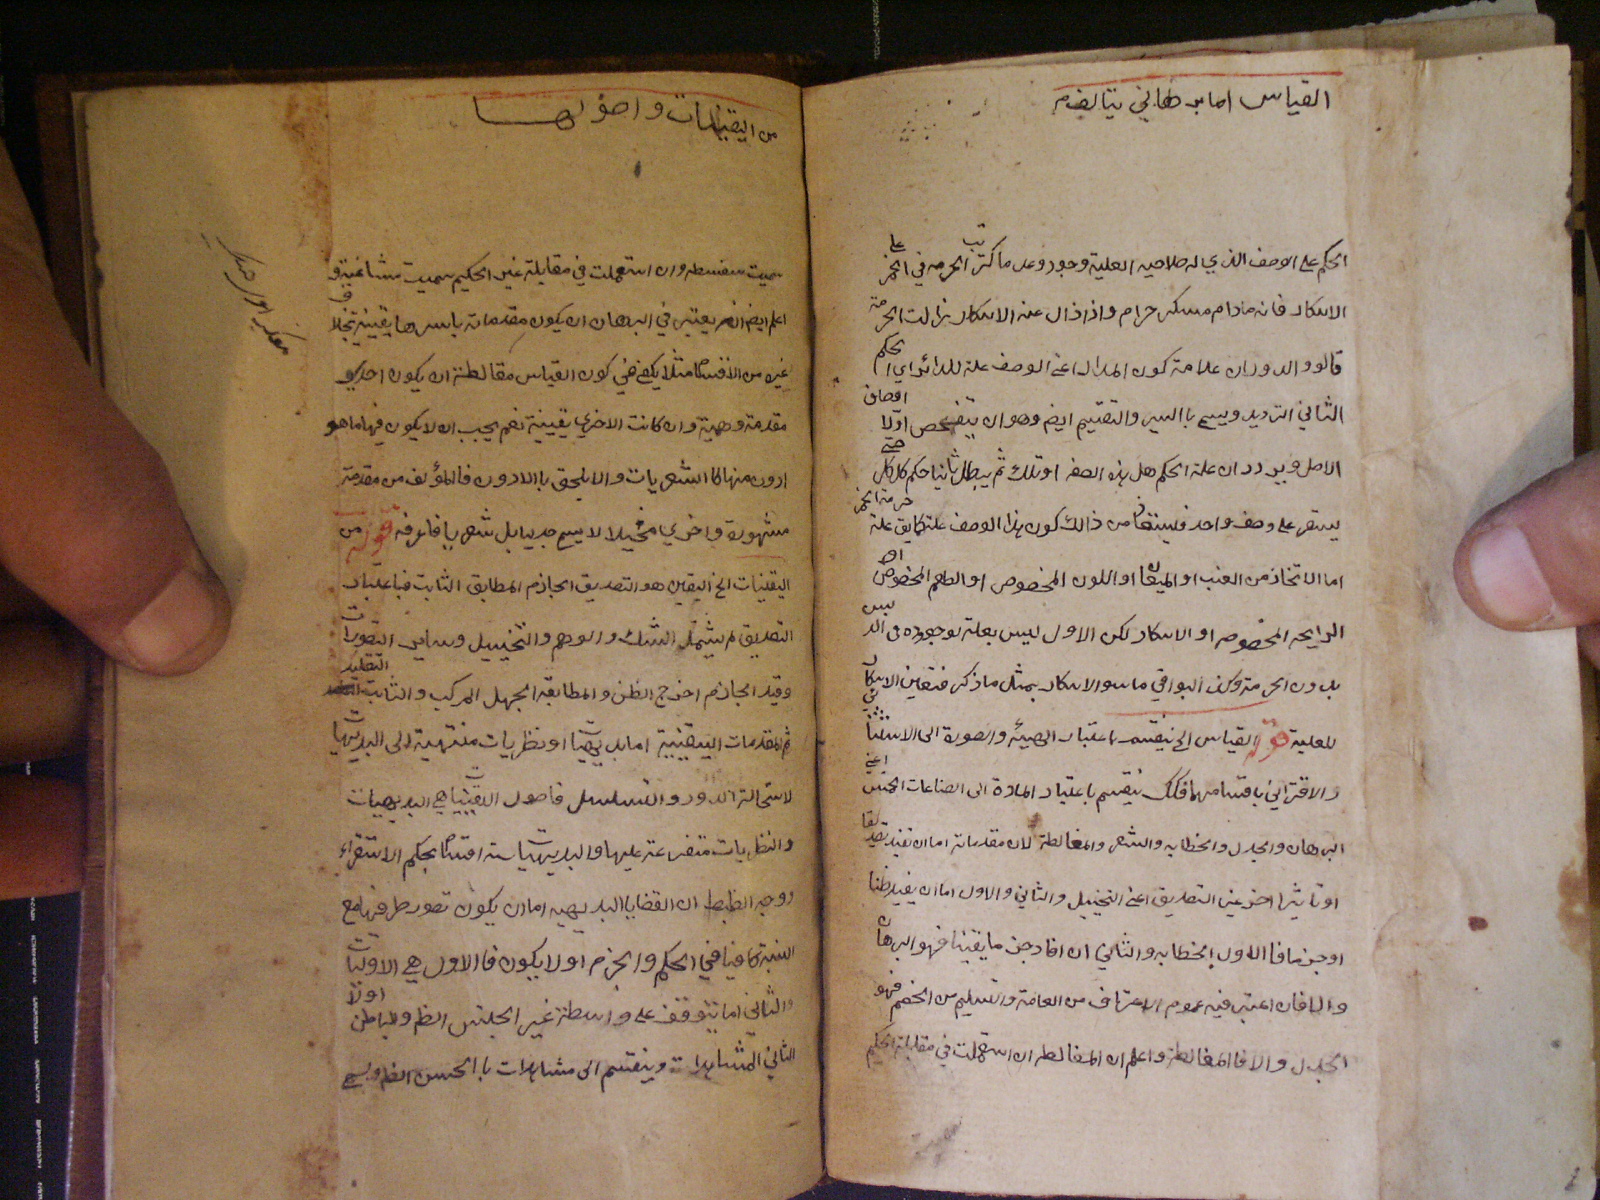 القياس اما برهاني يتالف
الحكم على الوصف الذي له صلاحيه العلية وجودا وعدما كترتب الحرمه في الخمر على
الاسكار فانه مادام مسكر حرام واذا زال عنه الاسكار زالت الحرمة
قالوا والدوران علامة كون المدار اعني الوصف علة للدائر اي الحكم
الثاني الترديد ويسمى باالسبر والتقسيم ايض وهو ان يتفحص اولا اوصاف
الاصل ويردد ان علة الحكم هل هذه الصفه او تلك ثم يبطل ثانيا حكم كل كل حتى
يستقر على وصف واحد فيستفاد من ذالك كون هذا الوصف علة كما يق علة حرمة الخمر
اما الاتخاذ من العنب او الميعان او اللون المخصوص او الطعم المخصوص او
الرايحه المخصوصه او الاسكار لكن الاول ليس بعلة لوجوده في الدبس
بدون الحرمة وكذا البواقي ما سو الاسكار بمثل ما ذكر فتعين الاسكار
للعلية قوله القياس الخ ينقسم باعتبار الهيئه والصورة الى الاستثنائي
والاقتراني باقسامهما فكك ينقسم باعتبار المادة الى الصناعات الخمس اعني
البرهان والجدل والخطابه والشعر والمغالطة لان مقدماته اما ان تفيد تصديقا
او تاثيرا اخر غير التصديق اعني التخييل والثاني والاول اما ان يفيد ظنا
او جزما فا الاول الخطابه والثاني ان افاد جزما يقينا فهو البرهان
والا فان اعتبر فيه عموم الاعتراف من العامة والتسليم من الخصم فهو
الجدل والا فا المغالطة واعلم ان المغالطه ان استعملت في مقابلة الحكيم
من اليقينيات واصولها
سميت سفسطه وان استعملت في مقابلة غير الحكيم سميت مشاغبة و
اعلم ايض انه يعتبر في البرهان ان يكون مقدماته باسرها يقينية بخلاف
غيره من الاقسام مثلا يكفي في كون القياس مغالطة ان يكون احدى
مقدمة وهمية وان كانت الاخري يقينية نعم يجب ان لا يكون فيها ما هو
ادون منها كا الشعريات والا يلحق باالادون فالمؤلف من مقدمة
مشهورة واخري مخيلا لا يسمى جدليا بل شعريا فاعرفه قوله من
اليقنيات الخ اليقين هو التصديق الجازم المطابق الثابت فباعتبار
التصديق لم يشمل الشك والوهم والتخييل وساير التصورات
وقيد الجازم اخرج الظن والمطابقة الجهل المركب والثابت التقليد
ثم المقدمات اليقينية اما بديهيات او نظريات منتهية الى البديهيات
لاستحالة الدور والتسلسل فاصول اليقينيات هي البديهيات
والنظريات متفرعة عليها والبديهيات ستة اقسام بحكم الاستقراء
ووجه الظبط ان القضايا البديهيه اما ان يكون تصور طرفيها مع
النسبة كافيا في الحكم والجزم او لا يكون فا الاول هي الاوليات
والثاني اما يتوقف على واسطة غير الحس الظ والباطن اولا
الثاني المشاهدات وينقسم الى مشاهدات باالحس الظ ويسمى